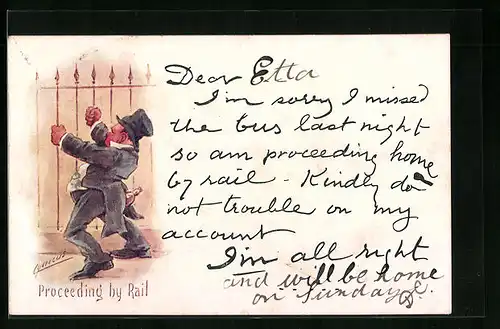 Dear Etta
I'm sorry I missed
the bus last night
so am proceeding home
by rail - Kindly do
not trouble on my
account
I'm all right
and will be home
on Sunday
Proceeding by Rail